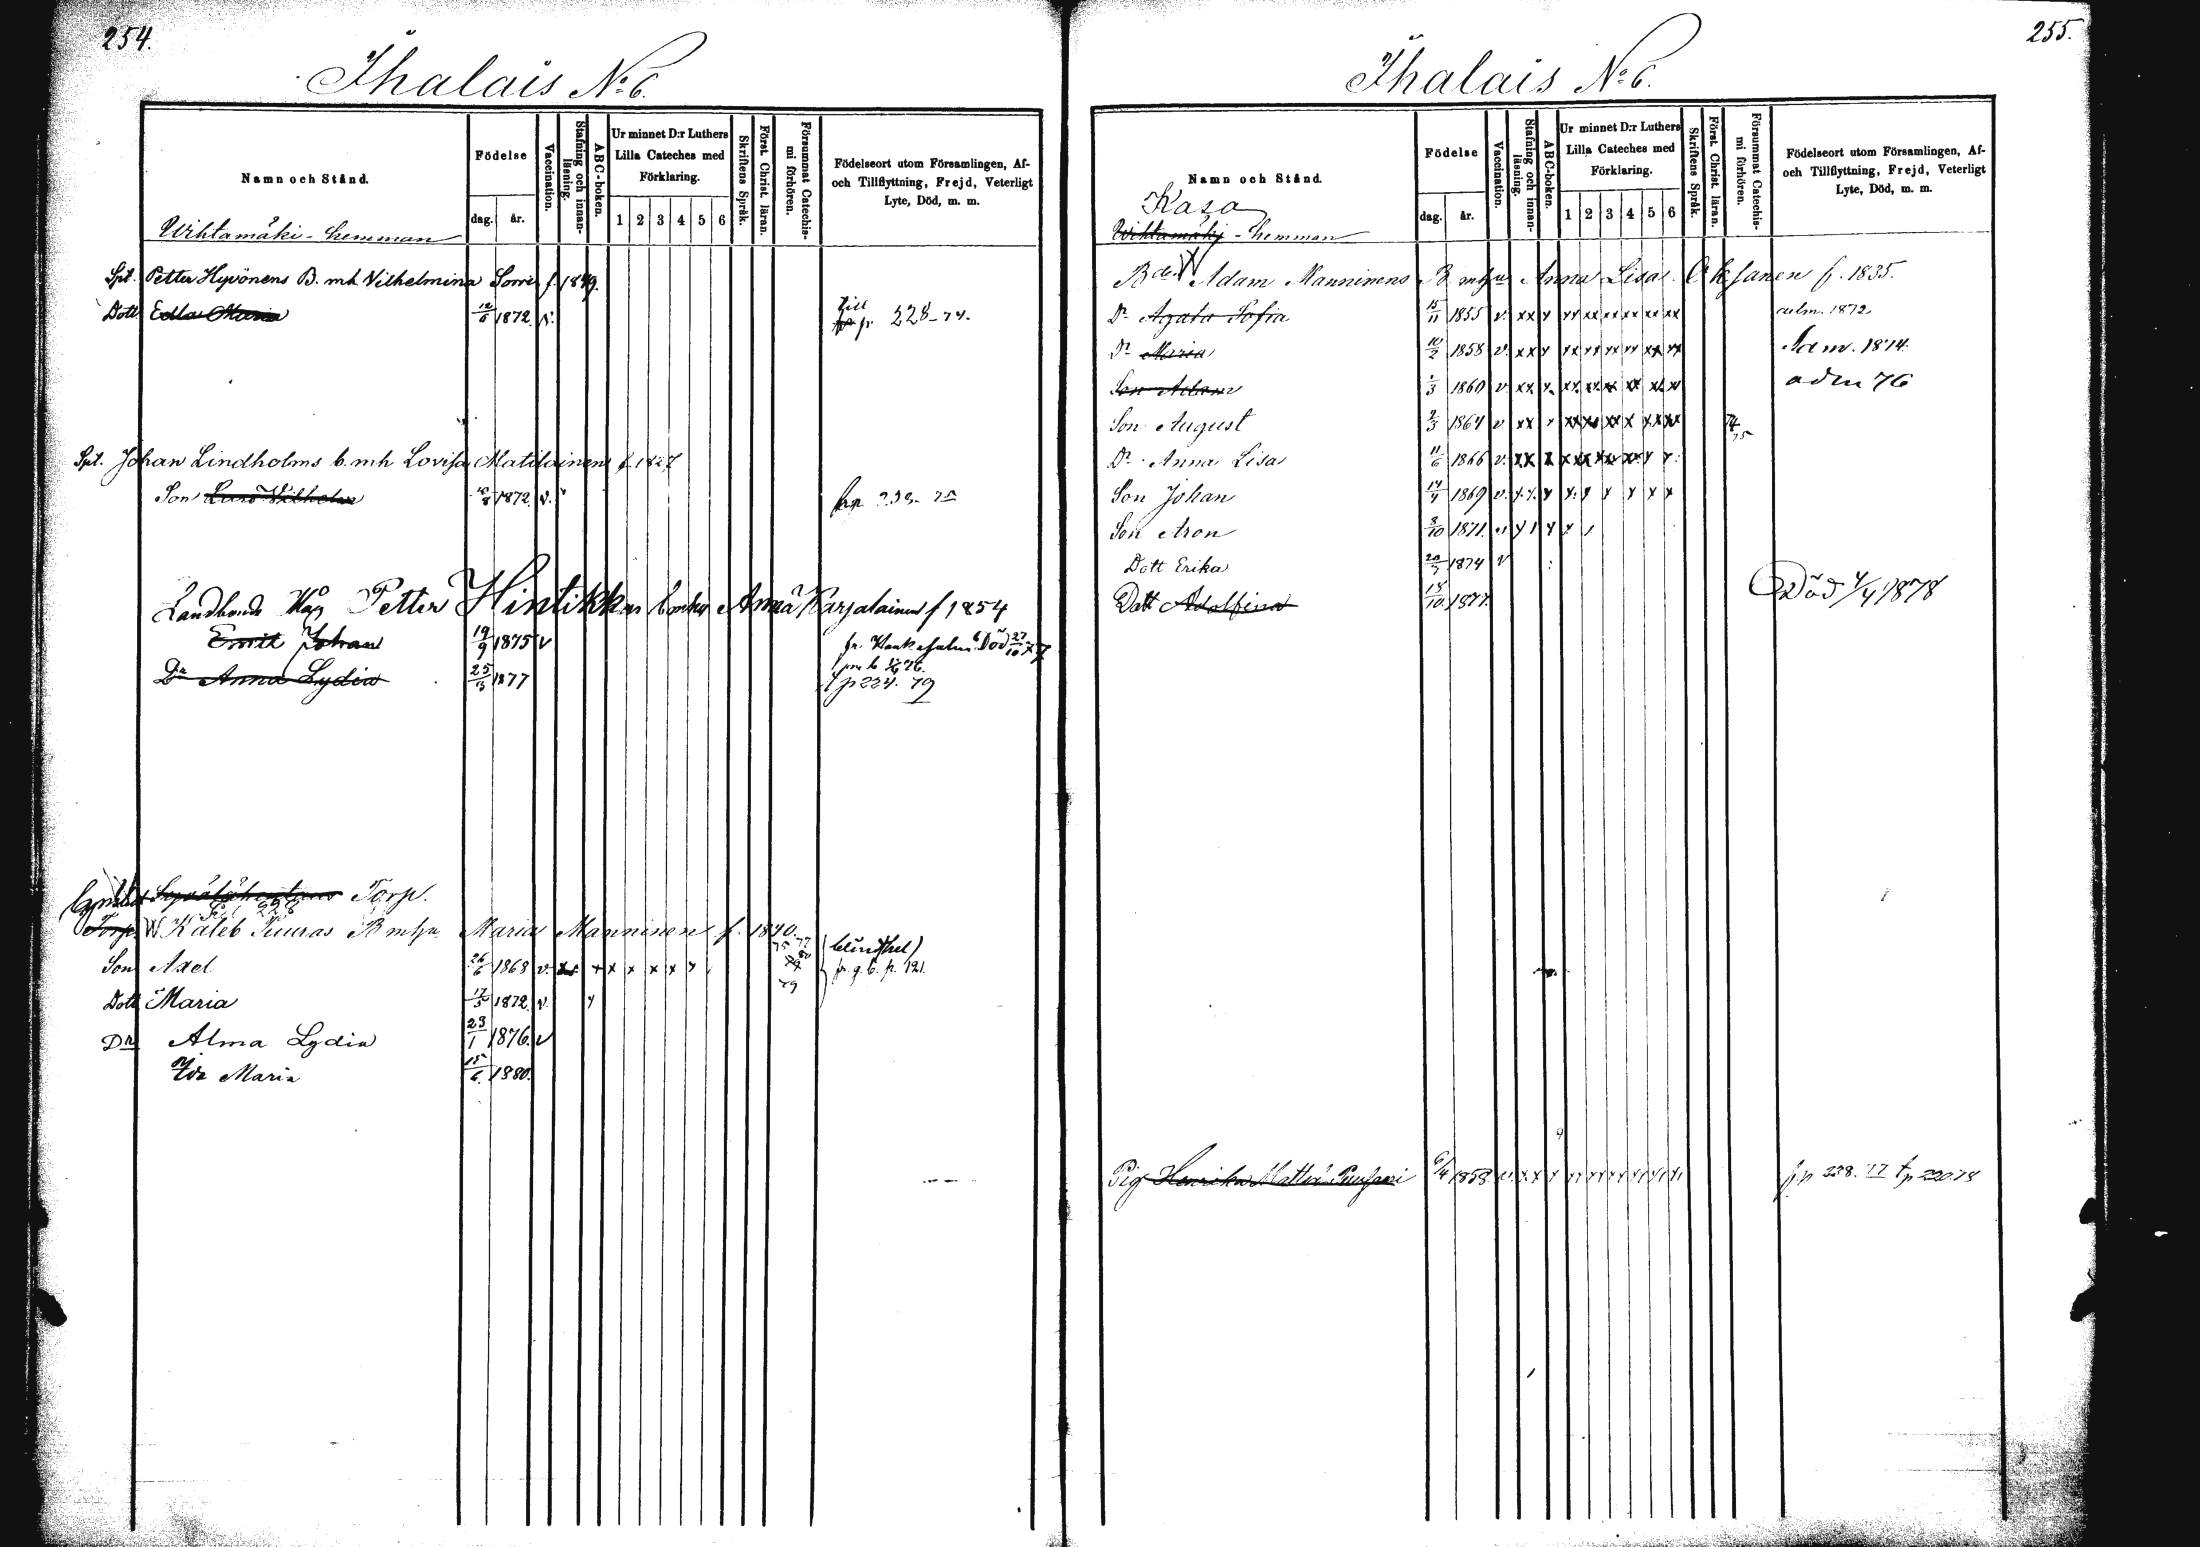 254.
Ihalais No 6.
Namn och Stånd.
Födelse
dag.
år.
Vaccination.
Stafning och innanläsning.
ABC-boken.
Ur minnet D:r Luthers Lilla Cateches med Förklaring.
1 2 3 4 5 6
Skriftens Språk.
Först. Christ. läran.
Försummat Catechismi förhören.
Födelseort utom Församlingen, Af- och Tillflyttning, Frejd, Veterligt Lyte, Död, m. m.
Wihtamäki - hemman
Spt. Petter Hyvönens B. mh Vilhelmina Sorri f. 1849.
Dott Edla Maria 12/6 1872 v. till p 228-74.
Spt. Johan Lindholms b. mh Lovisa Matilainen f. 1827
Son Vilhelm 1872 v.
Landbonde Petter Hintikkas Anna Karjalainen f 1854
Emil Johan 19/9 1875 v fr. Hankasalmi Död 27/10 77
Dr Anna Lydia 25/3 1877 t p 224. 79
Torp.
228
Torp. Kaleb Puuras B mhu Maria Manninen f. 1840.
Son Axel 26/6 1868 v. x x x x x x
75 77
79
fr. g. b. p. 121.
Dott Maria 17/5 1872 v.
Dr Alma Lydia 23/1 1876. v
Ida Maria 15/6 1880.
255.
Ihalais No 6.
Namn och Stånd.
Födelse
dag.
år.
Vaccination.
Stafning och innanläsning.
ABC-boken.
Ur minnet D:r Luthers Lilla Cateches med Förklaring.
1 2 3 4 5 6
Skriftens Språk.
Först. Christ. läran.
Försummat Catechismi förhören.
Födelseort utom Församlingen, Af- och Tillflyttning, Frejd, Veterligt Lyte, Död, m. m.
Kasa
Wihtamäki - hemman
Bde Adam Manninens B mhu Anna Lisa Oksanen f. 1835.
Dr Agata Sofia 15/11 1855 v. xx x xx xx xx xx xx xx adm. 1872
Dr Maria 10/2 1858 v. xx x xx xx xx xx xx xx adm. 1874.
Son Adam 1/3 1860 v xx x xx xx xx xx xx xx adm 76
Son August 2/3 1864 v xx x xx xx xx x xx xx 75
Dr Anna Lisa 11/6 1866 v. xx x x xx xx xx x x
Son Johan 14/4 1869 v. x x x x x x x x x
Son Aron 8/10 1871. v
Dott Erika 1874 v
Dott Adolfina 18/10 1877. Död 4/4 1878
Pig Henrika Mattsd. 6/4 1858 v. p 238. 77 tp 220.78